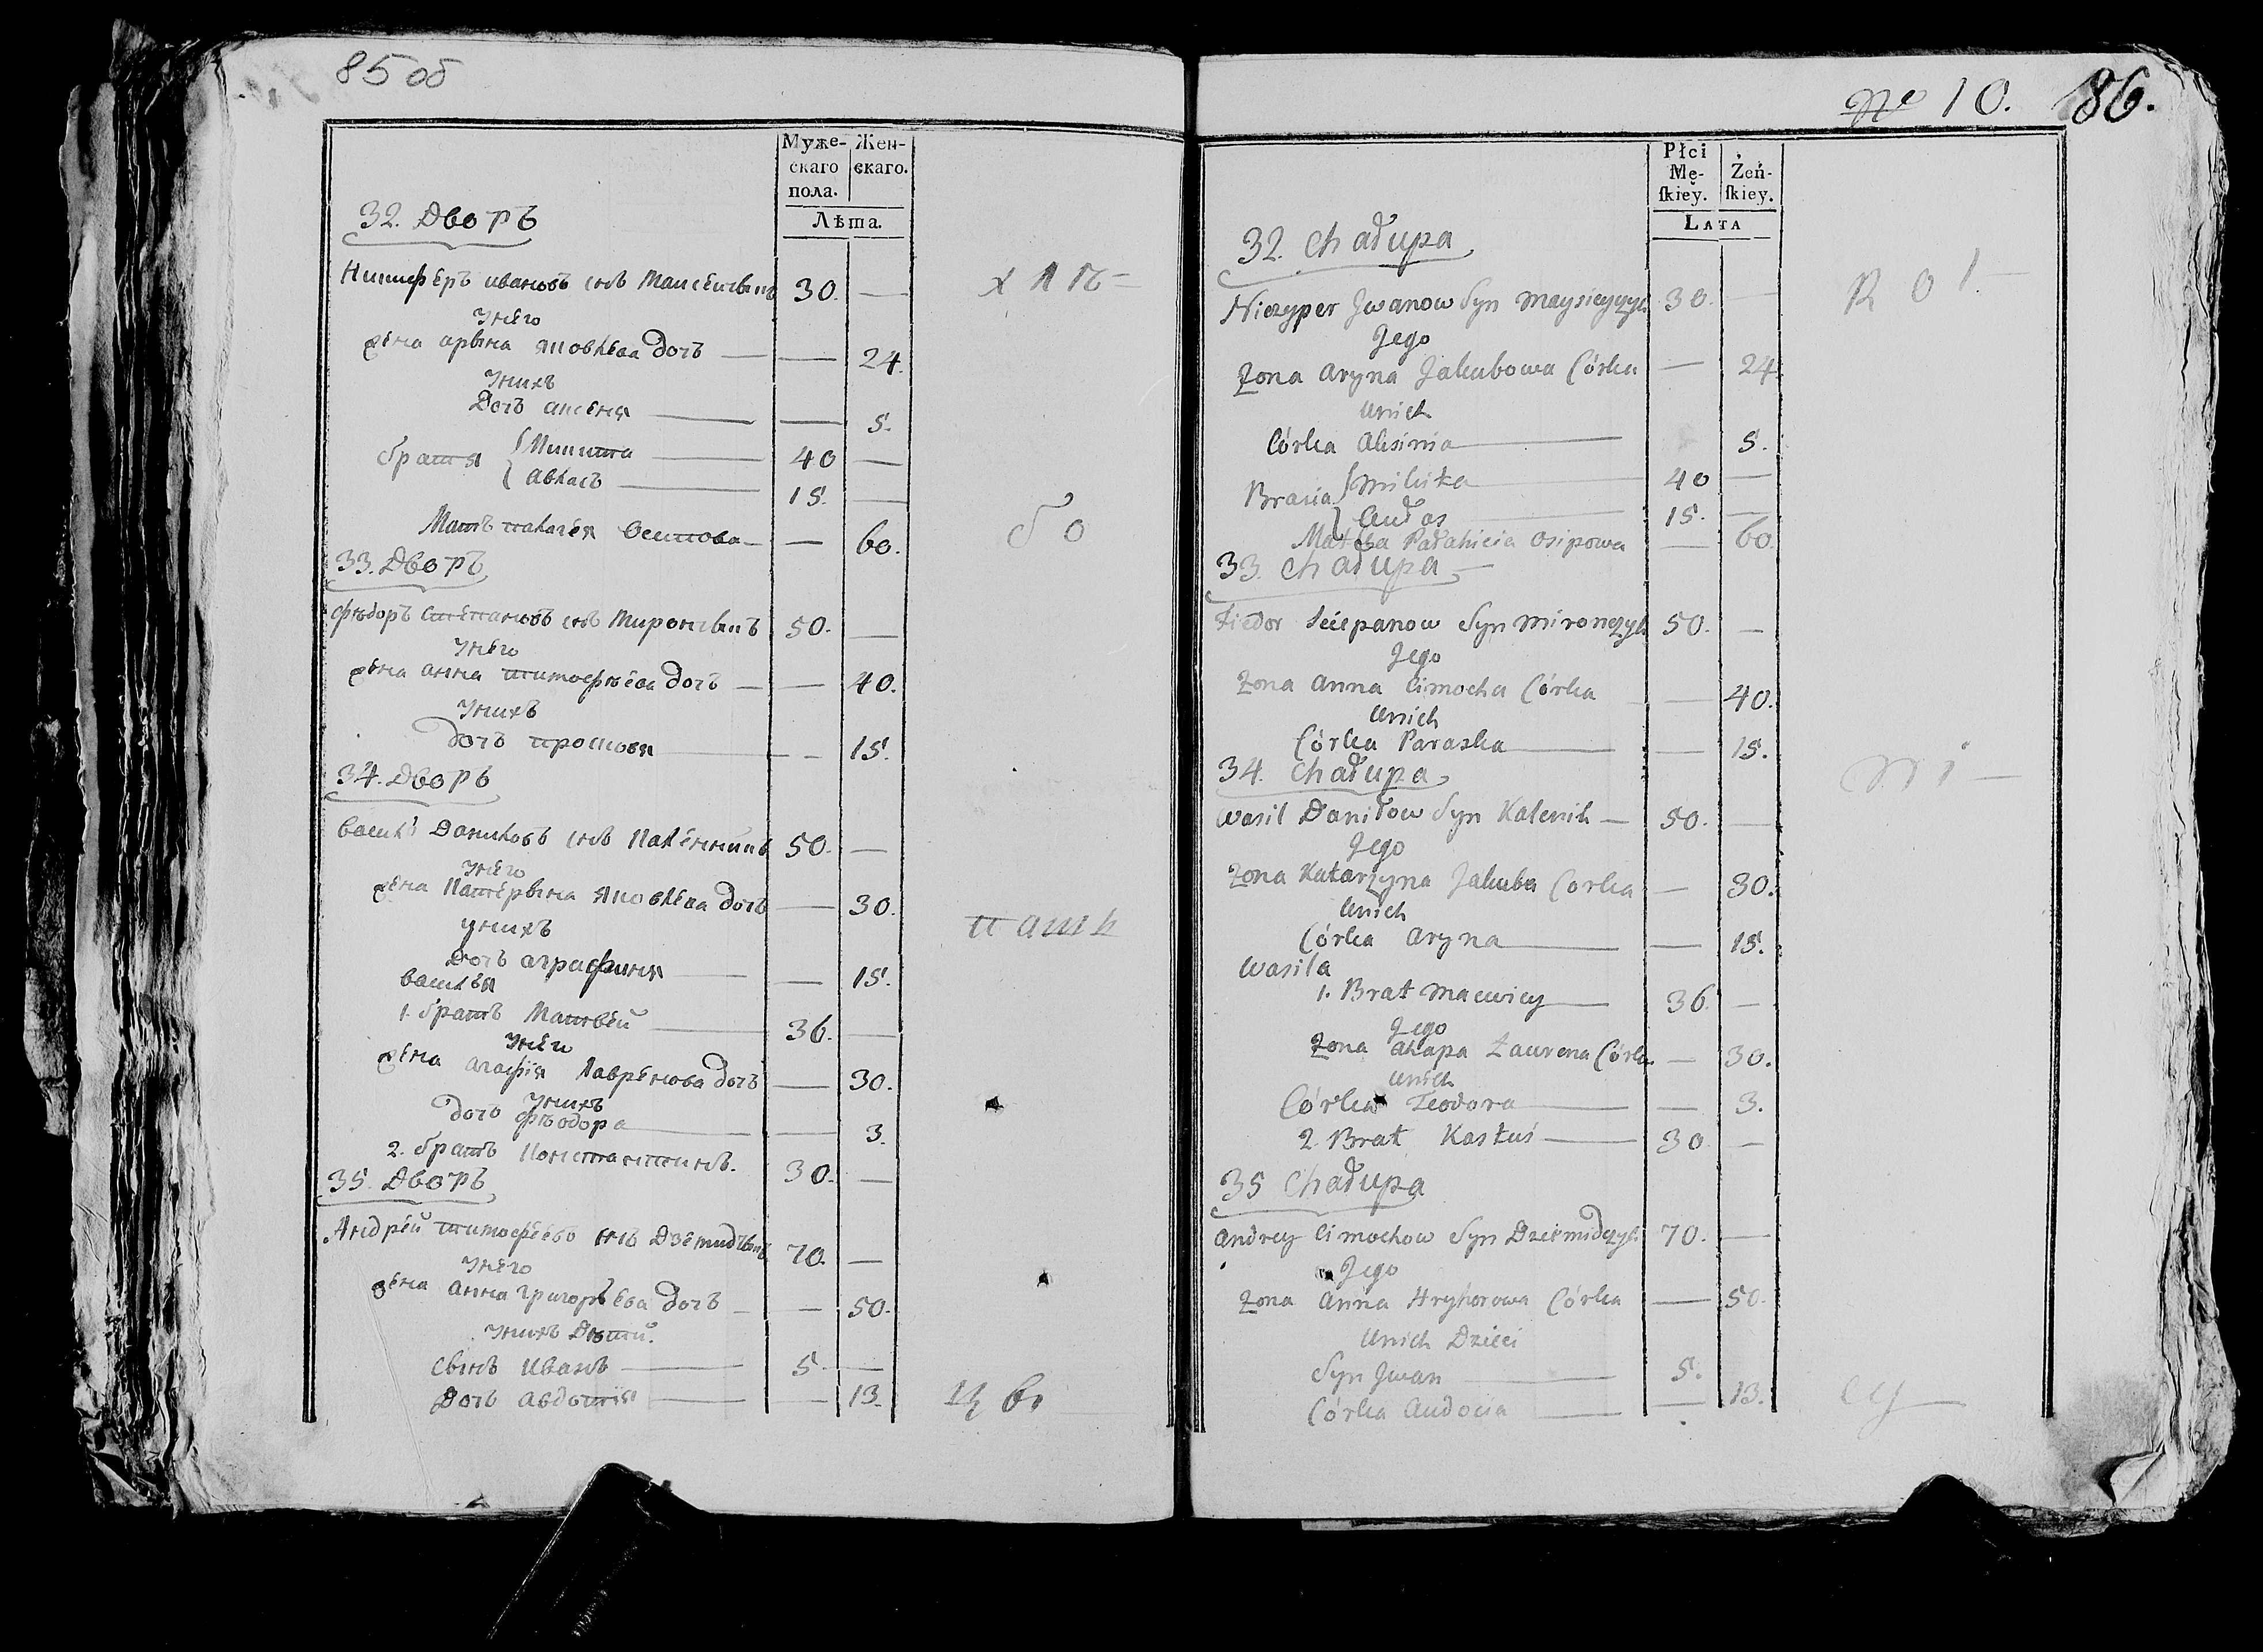 85 об
Муже-
скаго
пола.
Жен-
скаго.
Лѣта.
32. Дворъ
Никиферъ ивановъ снъ Маисеичвикъ 30. —
Унего
жена арына яковлева дочь — — 24.
Унихъ
Дочь аксеня — — 5.
братя Микита — 40 —
Авласъ — 15. —
Мать палагея Осипова — — 60.
33. Дворъ
Фѣдоръ Степановъ снъ Мирончвикъ 50. —
Унего
жена анна тимофѣева дочь — — 40.
Унихъ
дочь просковя — — 15.
34. Дворъ
Василь Даниловъ снъ Каленникъ 50. —
Унего
жена Катерына Яковлева дочь — 30.
унихъ
Дочь аграфиня — — 15.
Василья
1. братъ Матвей — 36. —
Унего
жена агафія Лавренова дочь — 30.
Унихъ
дочь Фѣодора — — 3.
2. братъ Константинъ. 30. —
35. Дворъ
Андрей тимофеевъ снъ Дземидчвикъ 70. —
Унего
жена анна григорьева дочь — — 50.
Унихъ Дѣти.
сынъ Иванъ — 5. —
Дочь авдотія — — 13.
No 10. 86.
Płci
Mę-
ſkiey.
Żeń-
ſkiey.
LATA
32. Chałupa
Niczyper Jwanow Syn Maysieyczyk 30. —
Jego
Żona Aryna Jakubowa Córka — 24.
Unich
Córka Aksinia — 5.
Bracia Mikita — 40 —
Audas — 15. —
Matka Pałahieia Osipowa — 60.
33. Chałupa —
Fiedor Sciepanow Syn Mironczyk 50. —
Jego
Żona Anna Cimocha Córka — 40.
Unich
Córka Paraska — — 15.
34. Chałupa
Wasil Daniłow Syn Kalenik — 50. —
Jego
Żona Katarzyna Jakuba Corka — 30.
Unich
Córka Aryna — — 15.
Wasila
1. Brat Maciviey — 36. —
Jego
Żona Ahapa Ławrena Córka — 30.
Unich
Córka Teodora — — 3.
2. Brat Kastuś — 30 —
35 Chałupa
Andrey Cimochow Syn Dziemidczyk 70. —
Jego
Żona Anna Hryhorowa Córka — 50.
Unich Dzieci
Syn Jwan — 5.
Córka Audocia — — 13.